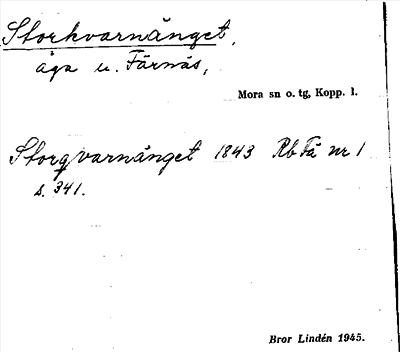 Storkvarnänget,
äga u. Färnäs,
Mora sn o. tg, Kopp. l.
Storqvarnänget 1843 Rb Fä nr 1
s. 341.
Bror Lindén 1945.